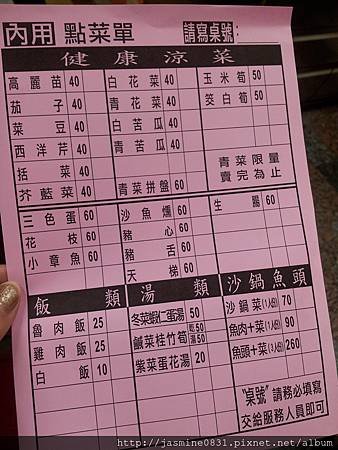 內用 點菜單 請寫桌號：
健康涼菜
高麗苗 40 白花菜 40 玉米筍 50
茄子 40 青花菜 40 筊白筍 50
菜豆 40 白苦瓜 40
西洋芹 40 青苦瓜 40
括菜 40 青菜限量
芥藍菜 40 青菜拼盤 60 賣完為止
三色蛋 60 沙魚燻 60 生腸 60
花枝 60 豬心 60
小章魚 60 豬舌 60
天梯 60
飯類 湯類 沙鍋魚頭
魯肉飯 25 冬菜蝦仁蛋湯 50 沙鍋菜(1人份) 70
雞肉飯 25 鹹菜桂竹筍 乾50 湯50 魚肉+菜(1人份) 90
白飯 10 紫菜蛋花湯 20 魚頭+菜(3人份) 260
"桌號"請務必填寫
交給服務人員即可
http://jasmine0831.pixnet.net/album